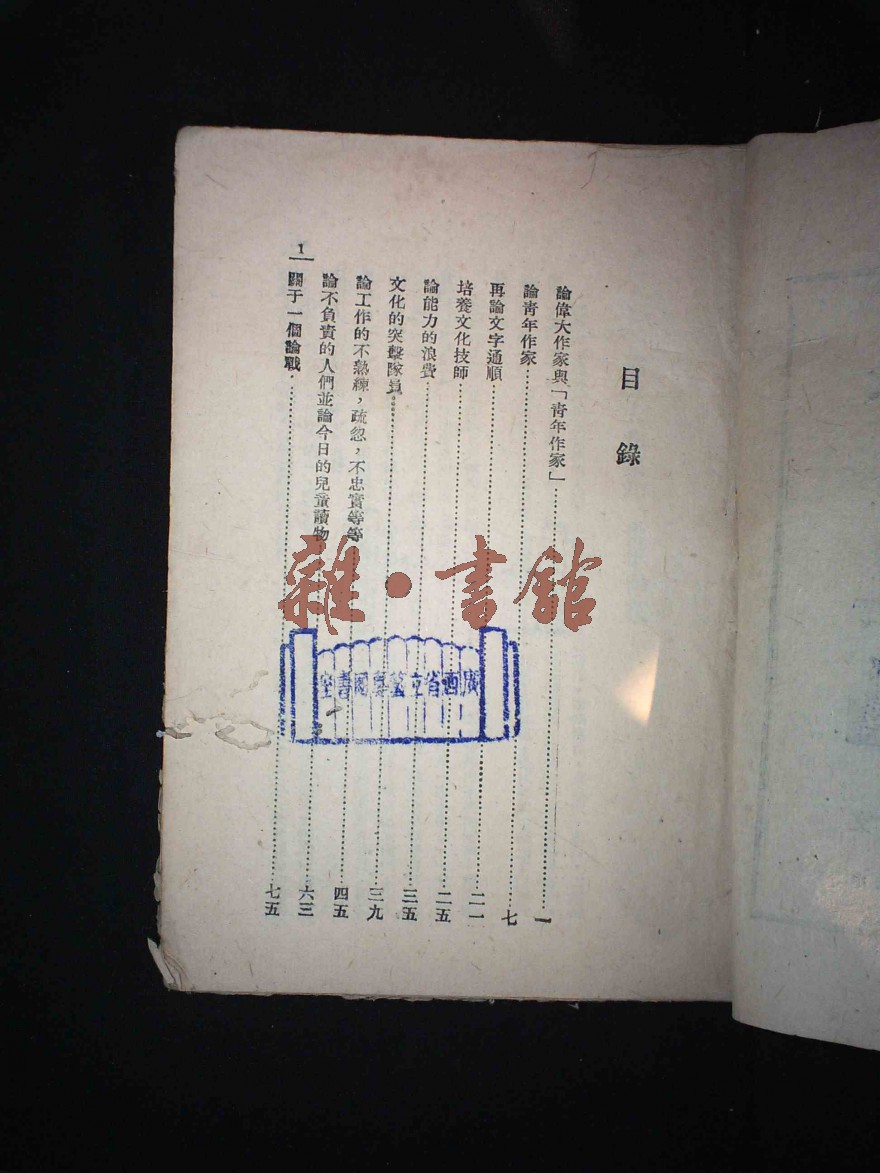 目錄
論偉大作家與「青年作家」……一
論青年作家……七
再論文字通順……二一
培養文化技師……二五
論能力的浪費……三五
文化的突擊隊員……三九
論工作的不熟練，疏忽，不忠實等等……四五
論不負責的人們並論今日的兒童讀物……六三
關于一個論戰……七五
1
雜·書館
廣西省立藝專圖書室